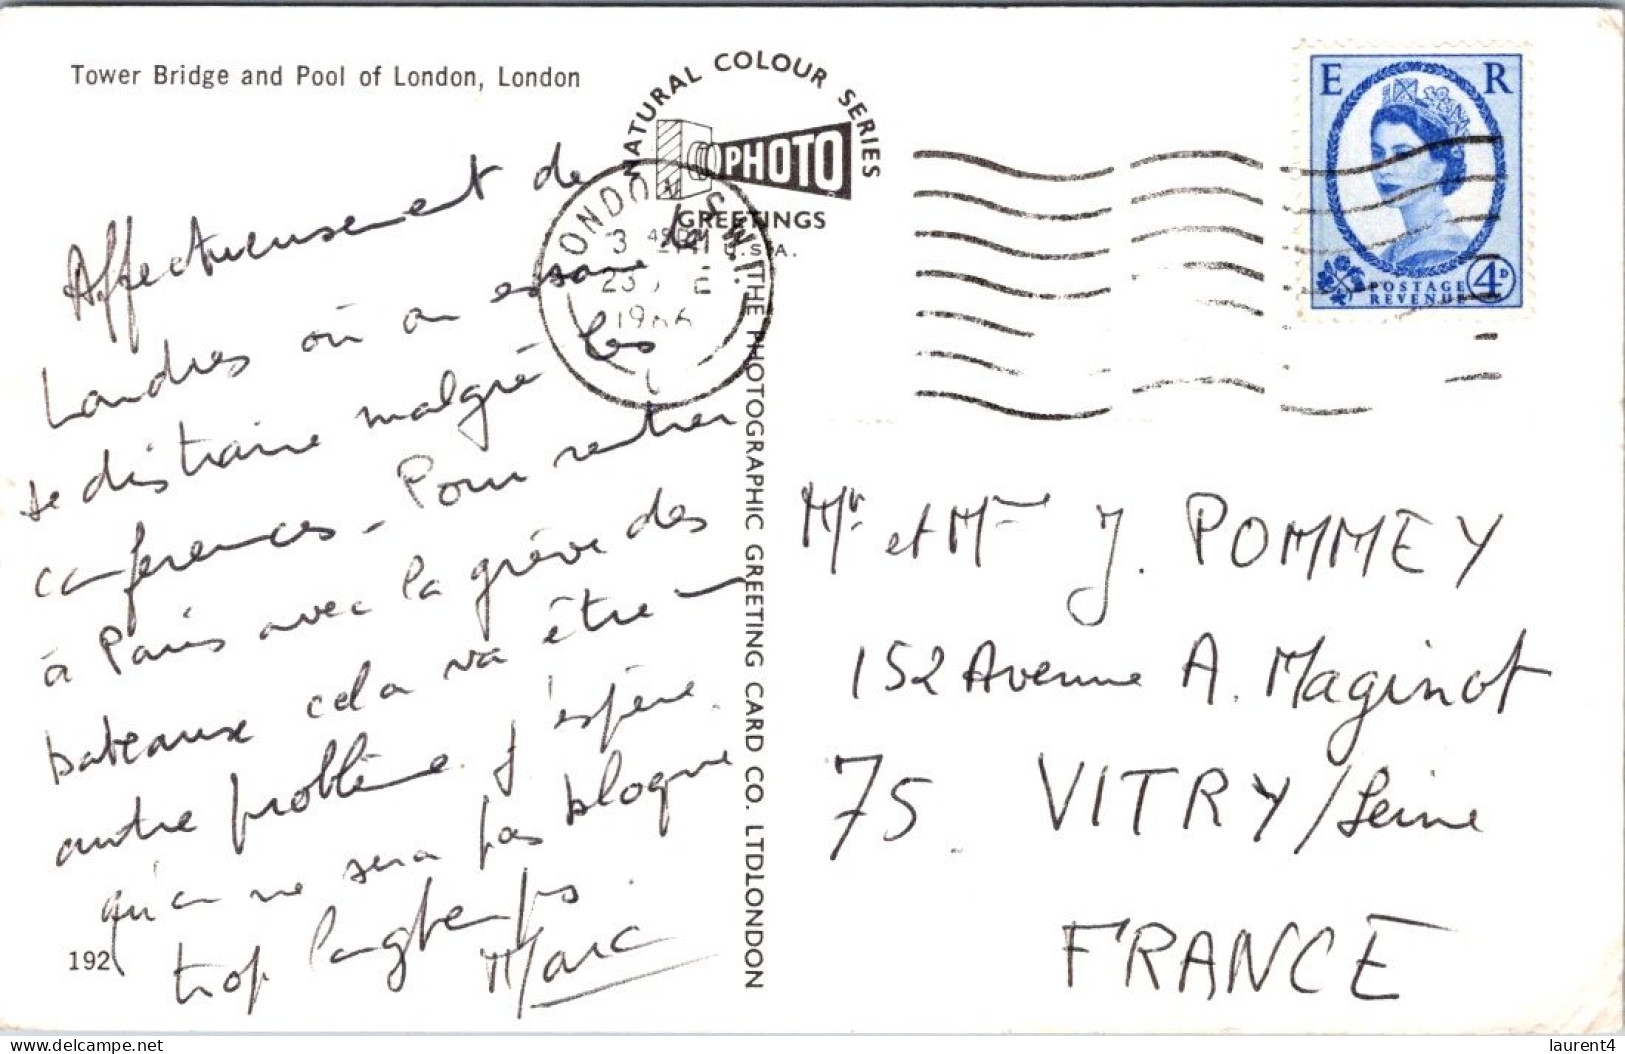 Tower Bridge and Pool of London, London
NATURAL COLOUR SERIES
PHOTO
GREETINGS
E R
POSTAGE
REVENUE
4D
LONDON
1966
Affectueusement de
Londres où on essaie de
se distraire malgré les
conférences - Pour rentrer
à Paris avec la grève des
bateaux cela va être un
autre problème. J'espère
qu'on ne sera pas bloqué
trop longtemps.
Marc
192
THE PHOTOGRAPHIC GREETING CARD CO. LTD LONDON
Mr et Mme J. POMMEY
152 Avenue A. Maginot
75 VITRY/Seine
FRANCE
delcampe.net
laurent4